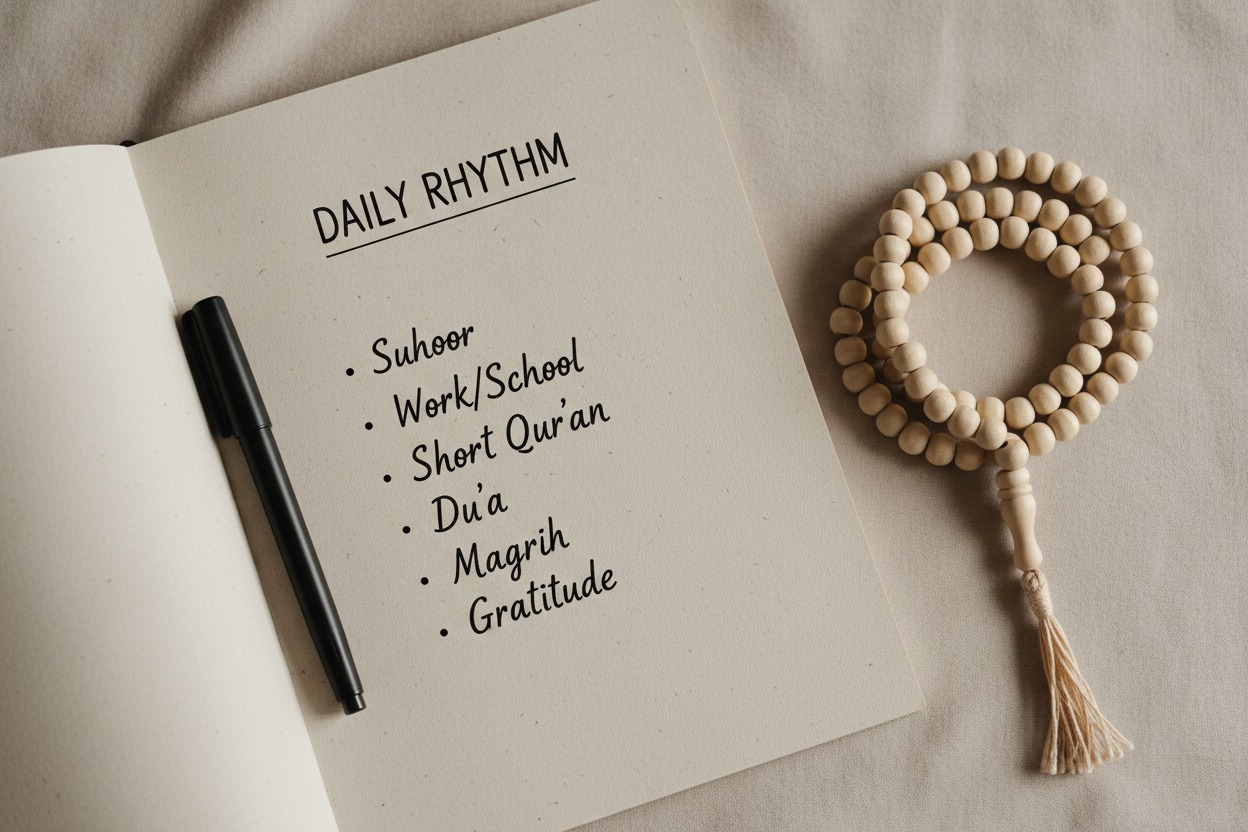 DAILY RHYTHM
• Suhoor
• Work/School
• Short Qur'an
• Du'a
• Magrih
• Gratitude